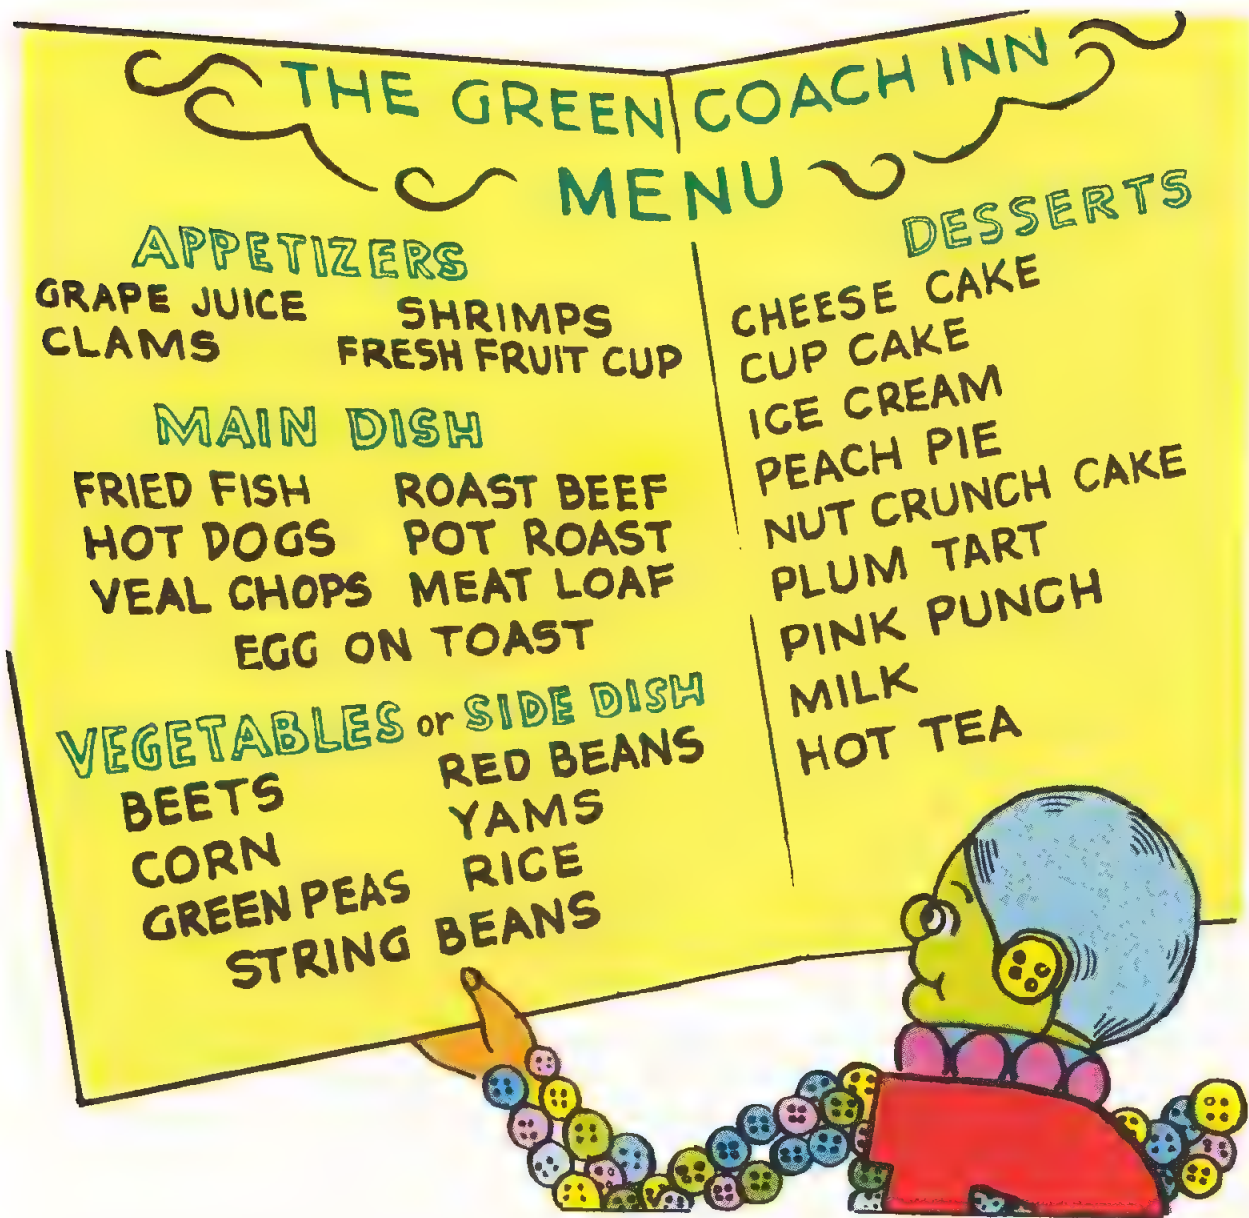 THE GREEN COACH INN
MENU
APPETIZERS
GRAPE JUICE SHRIMPS
CLAMS FRESH FRUIT CUP
MAIN DISH
FRIED FISH ROAST BEEF
HOT DOGS POT ROAST
VEAL CHOPS MEAT LOAF
EGG ON TOAST
VEGETABLES or SIDE DISH
BEETS RED BEANS
CORN YAMS
GREEN PEAS RICE
STRING BEANS
DESSERTS
CHEESE CAKE
CUP CAKE
ICE CREAM
PEACH PIE
NUT CRUNCH CAKE
PLUM TART
PINK PUNCH
MILK
HOT TEA